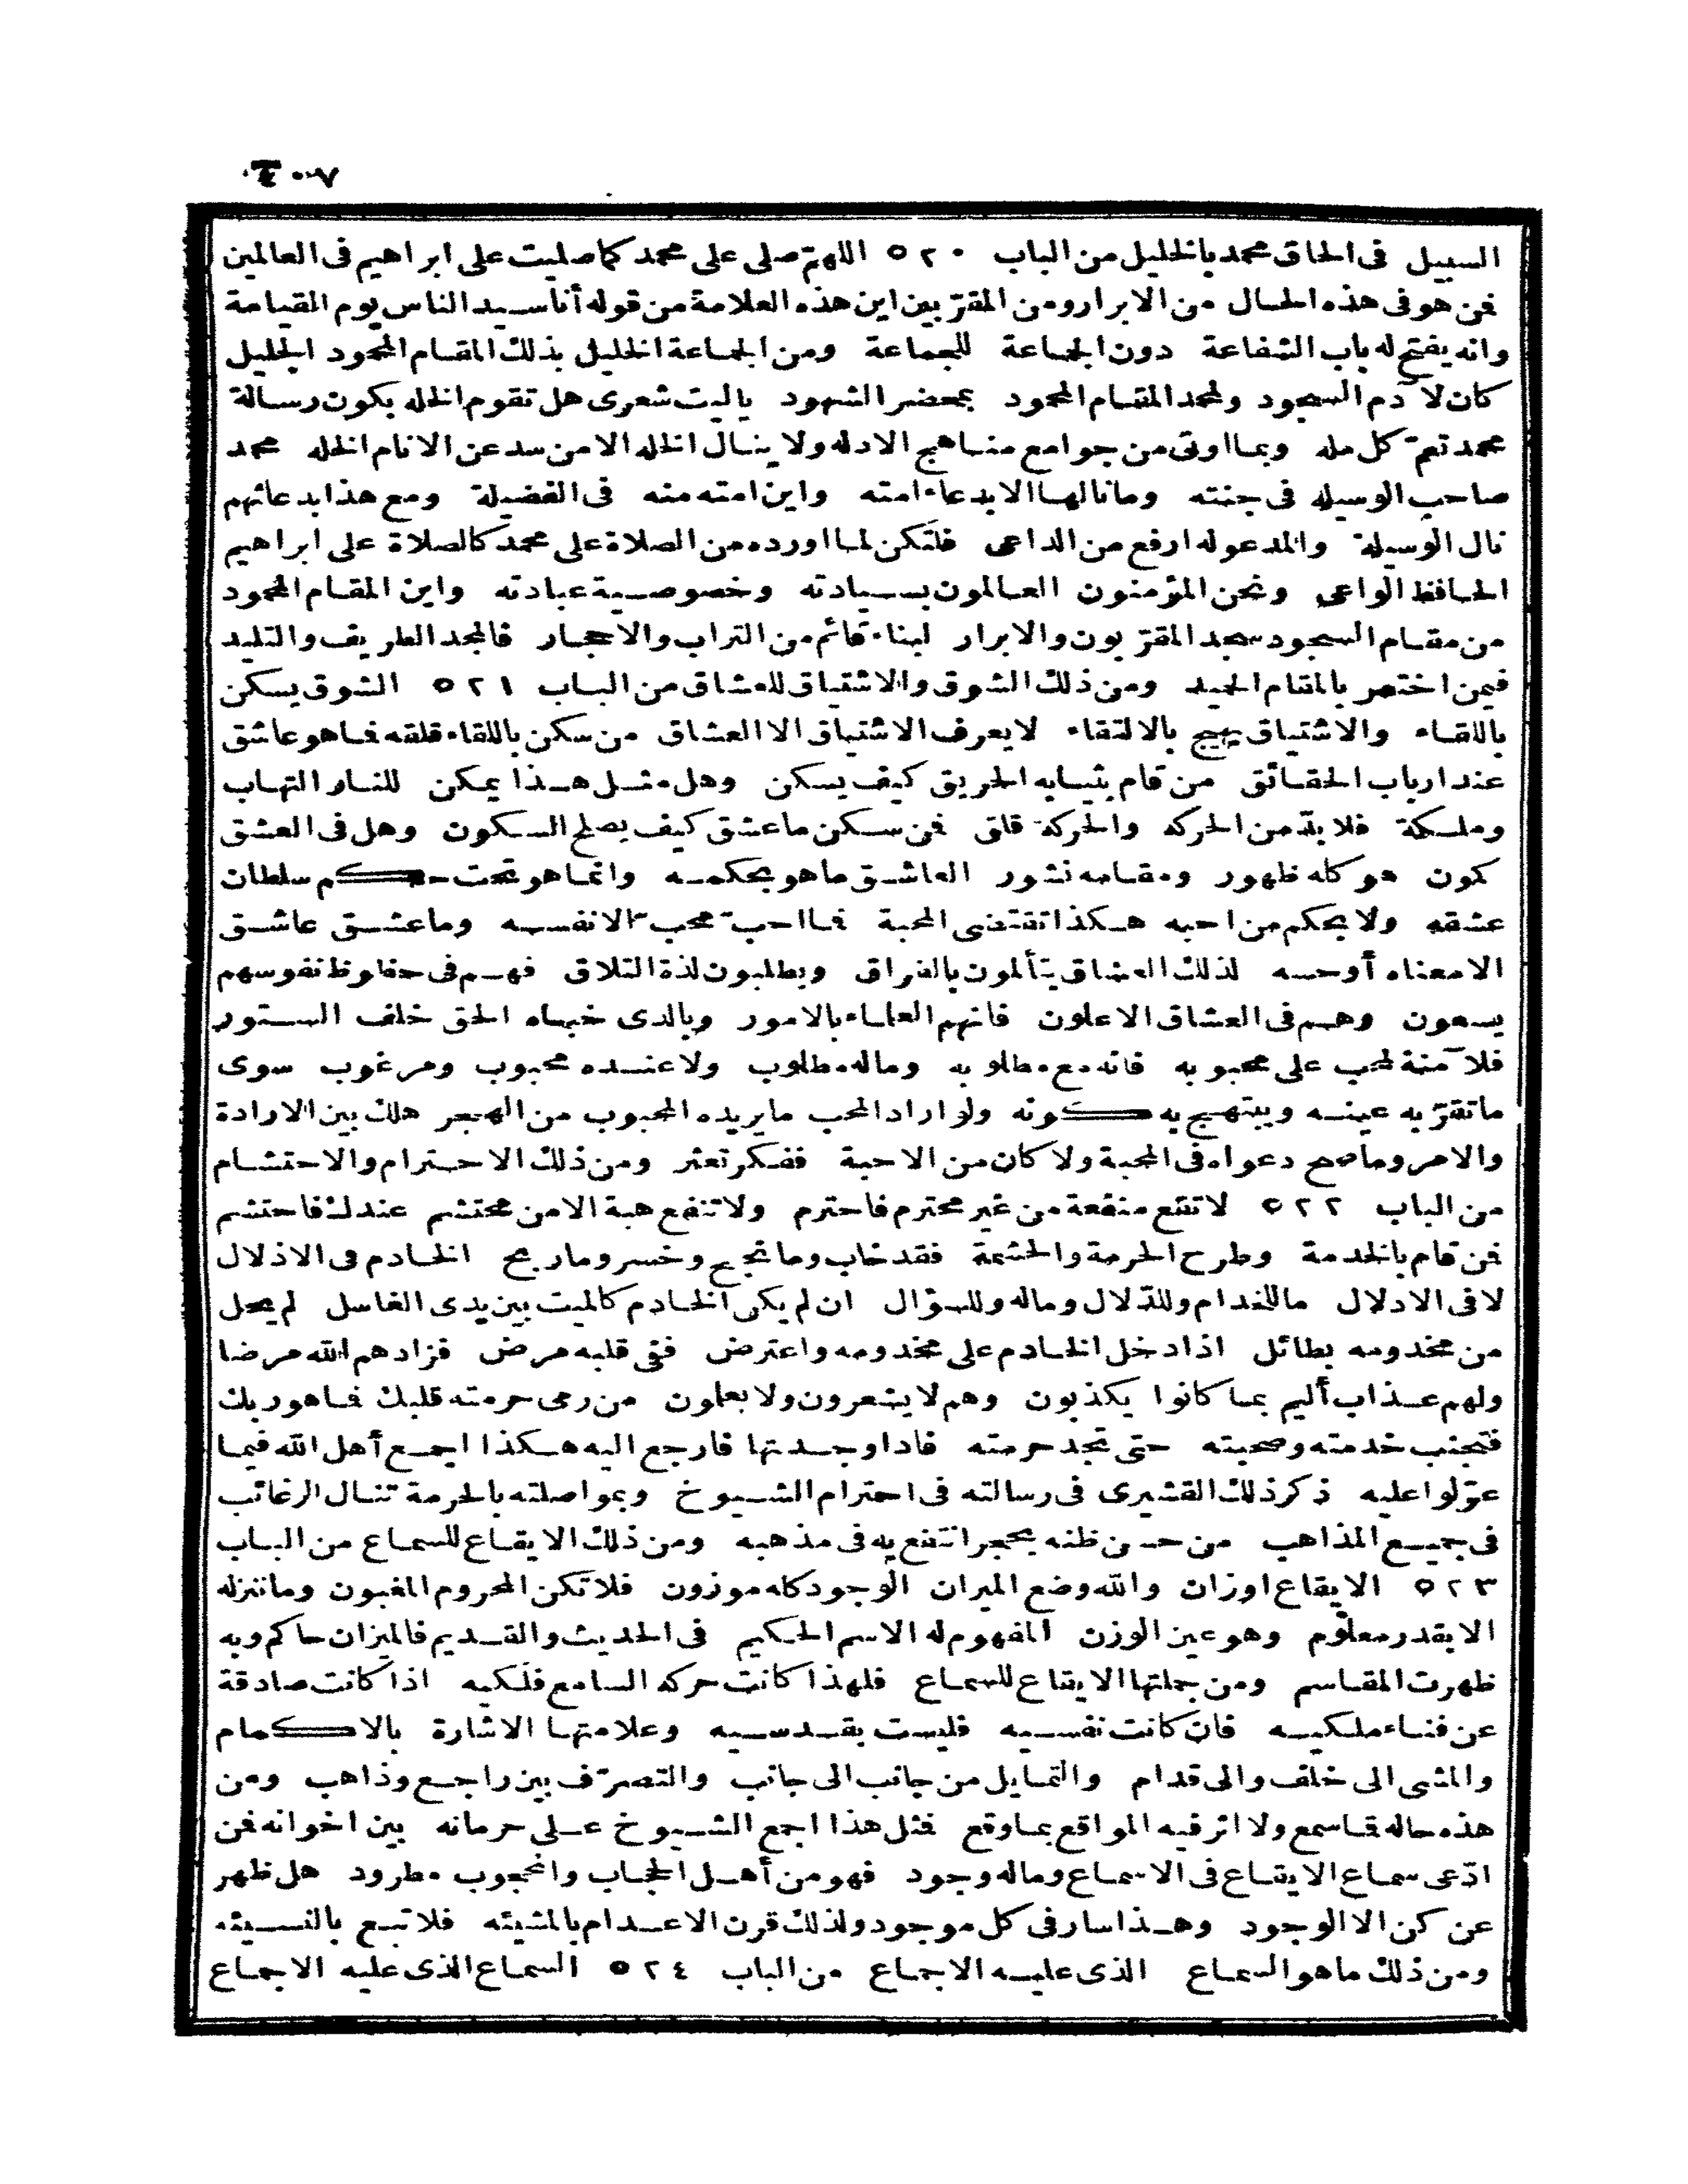 السبيل فى الحاق محمد بالخليل من الباب ٥٢٠ اللهمّ صلى على محمد كما صليت على ابراهيم فى العالمين
فمن هو فى هذه الحال من الابرار ومن المقرّبين اين هذه العلامة من قوله أنا سيد الناس يوم القيامة
وانه يفتح له باب الشفاعة دون الجماعة للجماعة ومن الجماعة الخليل بذلك المقام المحمود الجليل
كان لآدم السجود ولمحمد المقام المحمود بمحضر الشهود ياليت شعرى هل تقوم الخله بكون رسالة
محمد تعمّ كل مله وبما اوتى من جوامع مناهج الادله ولا ينال الخله الا من سد عن الانام الخله محمد
صاحب الوسيله فى جنته وما نالها الا بدعاء امته واين امته منه فى الفضيلة ومع هذا بدعائهم
نال الوسيلة والمدعوله ارفع من الداعى فلتكن لما اورده من الصلاة على محمد كالصلاة على ابراهيم
الحافظ الواعى ونحن المؤمنون العالمون بسيادته وخصوصية عبادته واين المقام المحمود
من مقام السجود سجد المقرّبون والابرار لبناء قائم من التراب والاحجار فالمجد الطريف والتليد
فيمن اختص بالمقام الحميد ومن ذلك الشوق والاشتياق للعشاق من الباب ٥٢١ الشوق يسكن
باللقاء والاشتياق يهيج بالالتقاء لا يعرف الاشتياق الا العشاق من سكن باللقاء قلقه فما هو عاشق
عند ارباب الحقائق من قام بثيابه الحريق كيف يسكن وهل مثل هذا يمكن للنار التهاب
وملكة فلا بدّ من الحركه والحركة قلق فمن سكن ما عشق كيف يصلح السكون وهل فى العشق
كون هو كله ظهور ومقامه نشور العاشق ما هو بحكمه وانما هو تحت حكم سلطان
عشقه ولا بحكم من احبه هكذا تقتضى المحبة فما احب محب الا نفسه وما عشق عاشق
الا معناه أو حسه لذلك العشاق يتألمون بالفراق ويطلبون لذة التلاق فهم فى حظوظ نفوسهم
يسعون وهم فى العشاق الاعلون فانهم العلماء بالامور وبالذى خباه الحق خلف الستور
فلا منة لمحب على محبوبه فانه مع مطلوبه وماله مطلوب ولا عنده محبوب ومرغوب سوى
ما تقرّ به عينه ويبتهج به كونه ولو اراد المحب ما يريده المحبوب من الهجر هلك بين الارادة
والامر وما صح دعواه فى المحبة ولا كان من الاحبة ففكر تعثر ومن ذلك الاحترام والاحتشام
من الباب ٥٢٢ لا تقع منفعة من غير محترم فاحترم ولا تنفع هبة الا من محتشم عندك فاحتشم
فمن قام بالخدمة وطرح الحرمة والحشمة فقد خاب وما نجح وخسر وما ربح الخادم فى الاذلال
لا فى الادلال ما للخدام وللدّلال وماله وللسؤال ان لم يكن الخادم كالميت بين يدى الغاسل لم يحل
من مخدومه بطائل اذا دخل الخادم على مخدومه واعترض ففى قلبه مرض فزادهم الله مرضا
ولهم عذاب أليم بما كانوا يكذبون وهم لا يشعرون ولا يعلمون من رمى حرمته قلبك فما هو ربك
فتجنب خدمته وصحبته حتى تجد حرمته فاذا وجدتها فارجع اليه هكذا اجمع أهل الله فيما
عوّلوا عليه ذكر ذلك القشيرى فى رسالته فى احترام الشيوخ وبمواصلته بالحرمة تنال الرغائب
فى جميع المذاهب من حسن ظنه بحجر انتفع به فى مذهبه ومن ذلك الايقاع للسماع من الباب
٥٢٣ الايقاع اوزان والله وضع الميزان الوجود كله موزون فلا تكن المحروم المغبون وما ننزله
الا بقدر معلوم وهو عين الوزن المفهوم له الاسم الحكيم فى الحديث والقديم فالميزان حاكم وبه
ظهرت المقاسم ومن جملتها الايقاع للسماع فلهذا كانت حركه السامع فلكيه اذا كانت صادقة
عن فناء ملكيه فان كانت نفسيه فليست بقدسيه وعلامتها الاشارة بالاكمام
والمشى الى خلف والى قدام والتمايل من جانب الى جانب والتصرّف بين راجع وذاهب ومن
هذه حاله فما سمع ولا اثر فيه المواقع بما وقع فمثل هذا اجمع الشيوخ على حرمانه بين اخوانه فمن
ادّعى سماع الايقاع فى الاسماع وماله وجود فهو من أهل الحجاب والمحجوب مطرود هل ظهر
عن كن الا الوجود وهذا سار فى كل موجود ولذلك قرن الاعدام بالمشيئه فلا تبع بالنسيئه
ومن ذلك ما هو السماع الذى عليه الاجماع من الباب ٥٢٤ السماع الذى عليه الاجماع